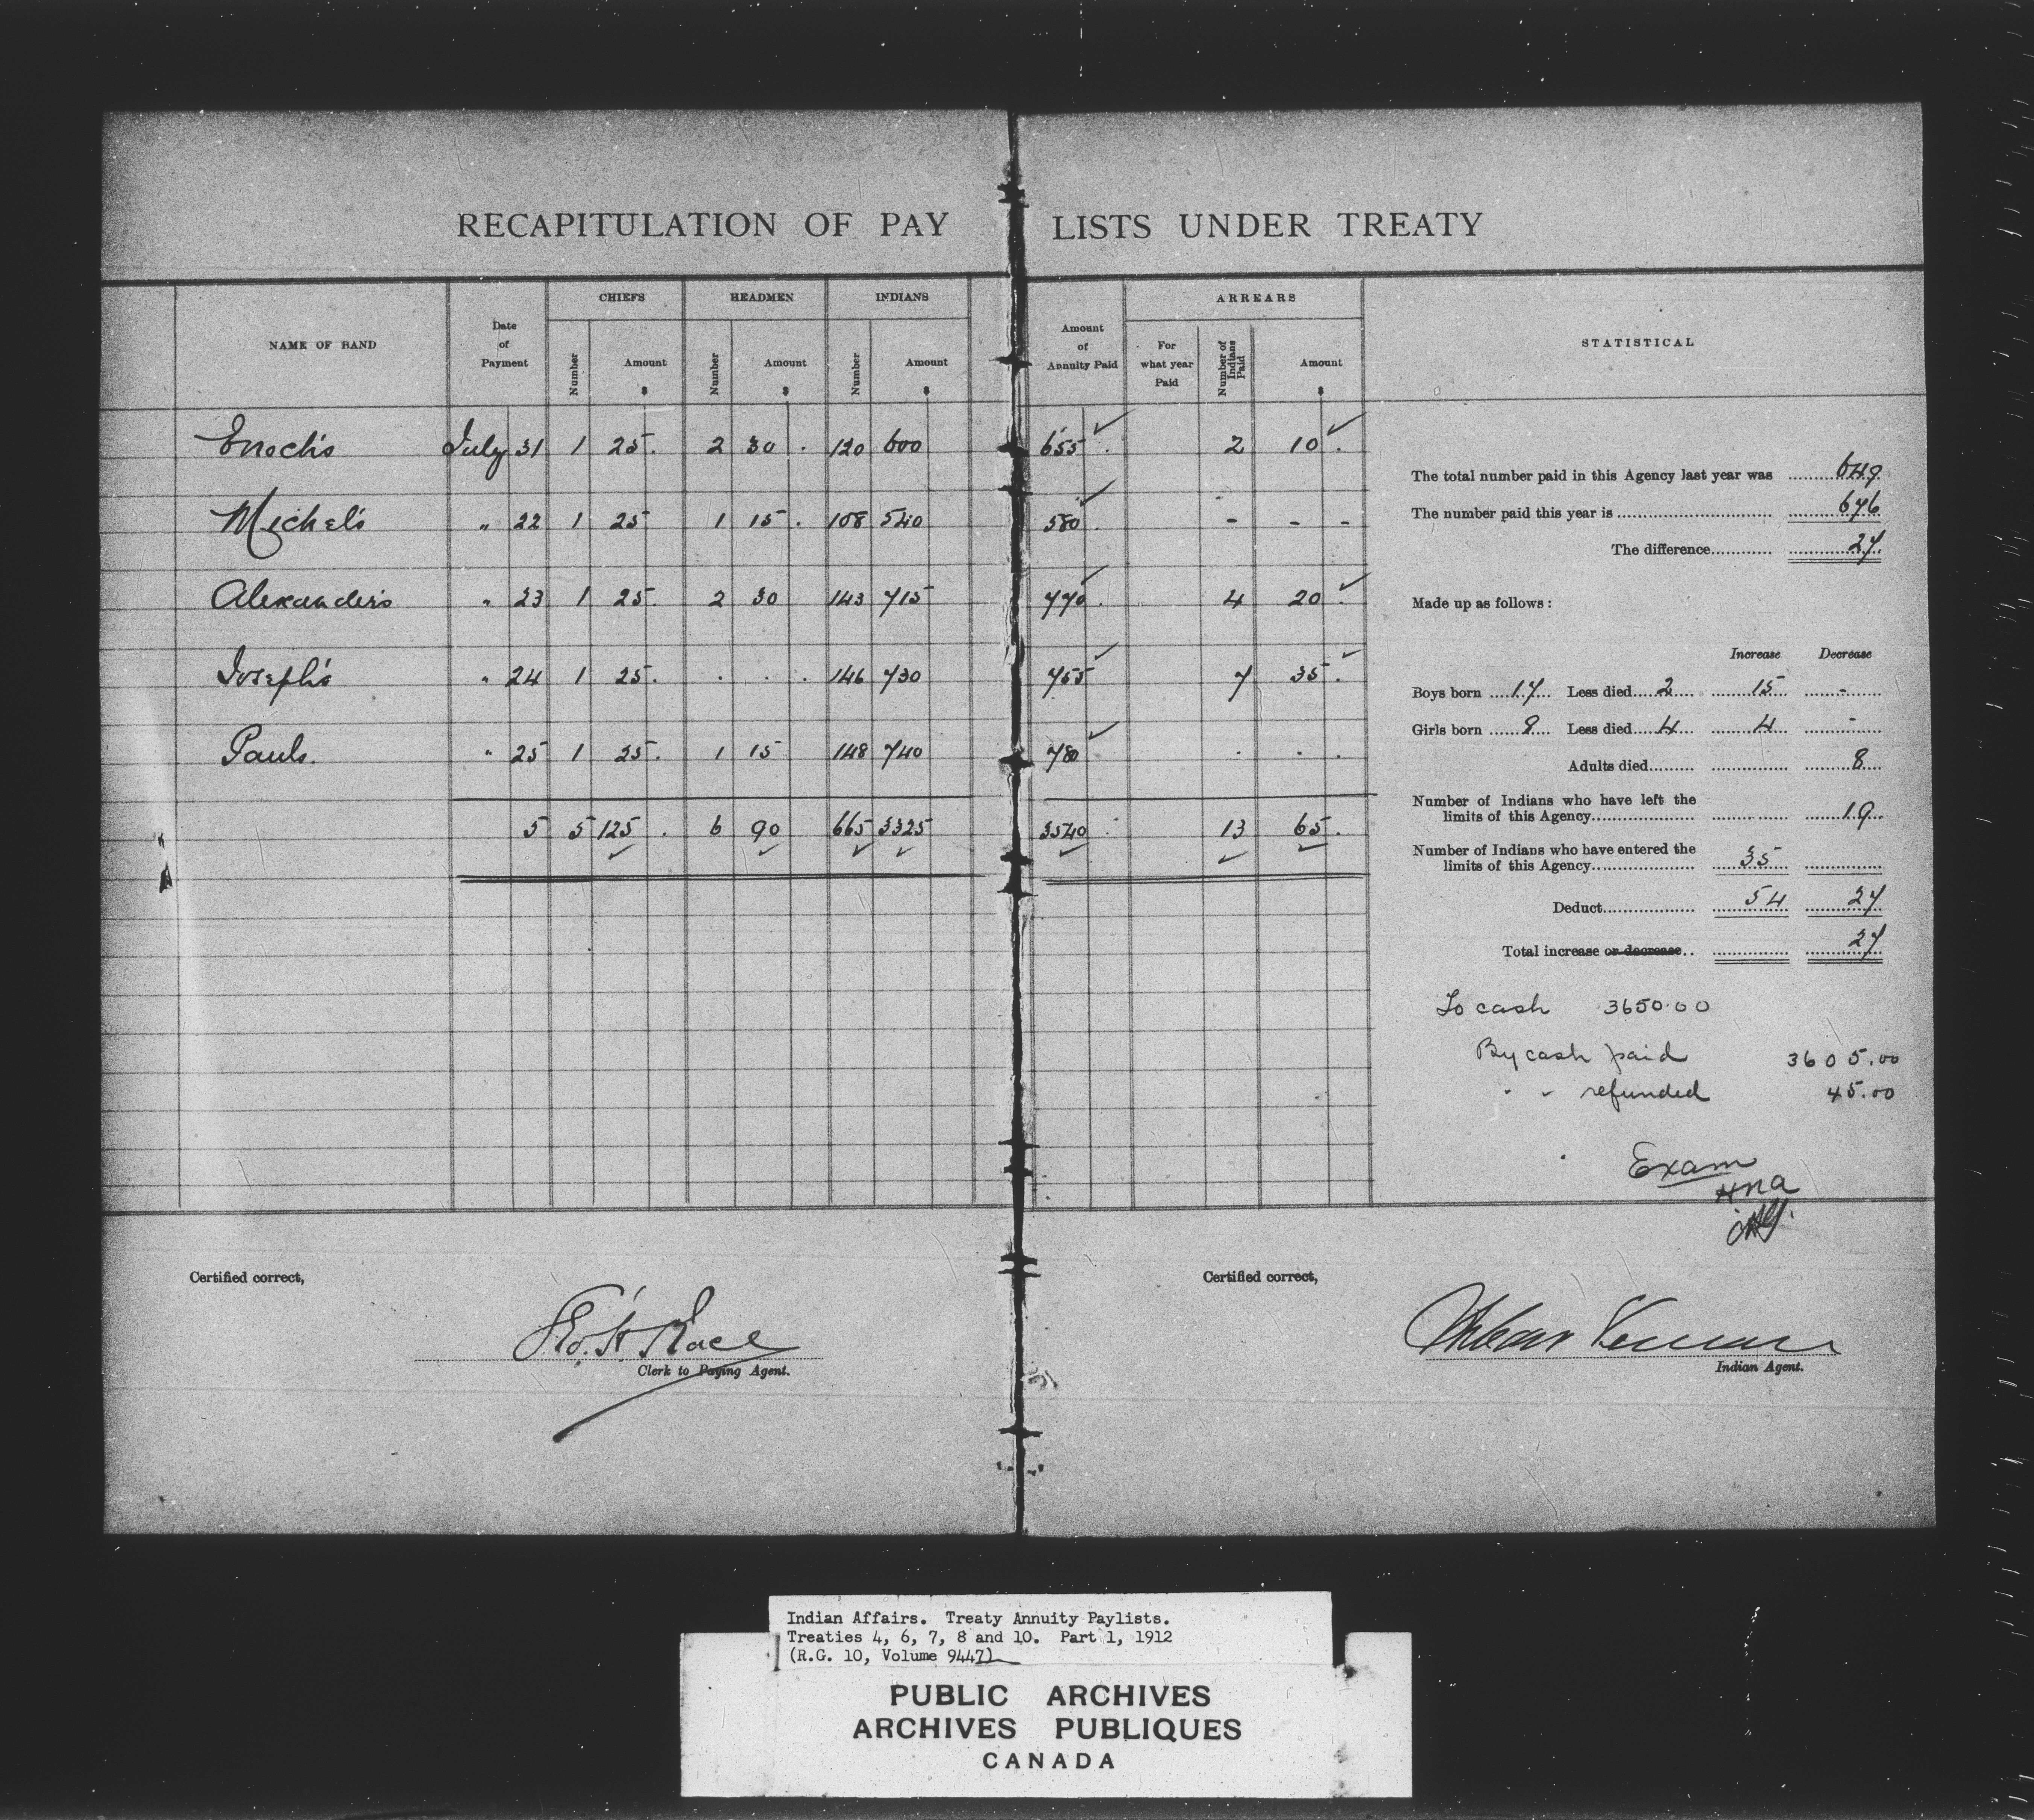 RECAPITULATION OF PAY LISTS UNDER TREATY
NAME OF BAND | Date of Payment | CHIEFS Number | Amount $ | HEADMEN Number | Amount $ | INDIANS Number | Amount $ | Amount of Annuity Paid | ARREARS For what year Paid | Number of Indians Paid | Amount $ | STATISTICAL
Enoch's July 31 1 25. 2 30 . 120 600 655 . 2 10 .
Michel's " 22 1 25 1 15 . 108 540 580 . - - -
Alexander's " 23 1 25. 2 30 143 715 770 . 4 20 .
Joseph's " 24 1 25. . . . 146 730 755 7 35 .
Pauls. " 25 1 25. 1 15 148 740 780 . . .
5 5 125 . 6 90 665 3325 3540 . 13 65 .
The total number paid in this Agency last year was 649
The number paid this year is 676
The difference 27
Made up as follows :
Increase Decrease
Boys born 17 Less died 2 15 -
Girls born 8 Less died 4 4 -
Adults died 8
Number of Indians who have left the
limits of this Agency 19
Number of Indians who have entered the
limits of this Agency 35
Deduct 54 27
Total increase or decrease 27
To cash 3650.00
By cash paid 3605.00
" " refunded 45.00
Exam
HNA
Certified correct,
Geo. H. Race
Clerk to Paying Agent.
Certified correct,
Urbain Verreau
Indian Agent.
Indian Affairs. Treaty Annuity Paylists.
Treaties 4, 6, 7, 8 and 10. Part 1, 1912
(R.G. 10, Volume 9447)
PUBLIC ARCHIVES
ARCHIVES PUBLIQUES
CANADA